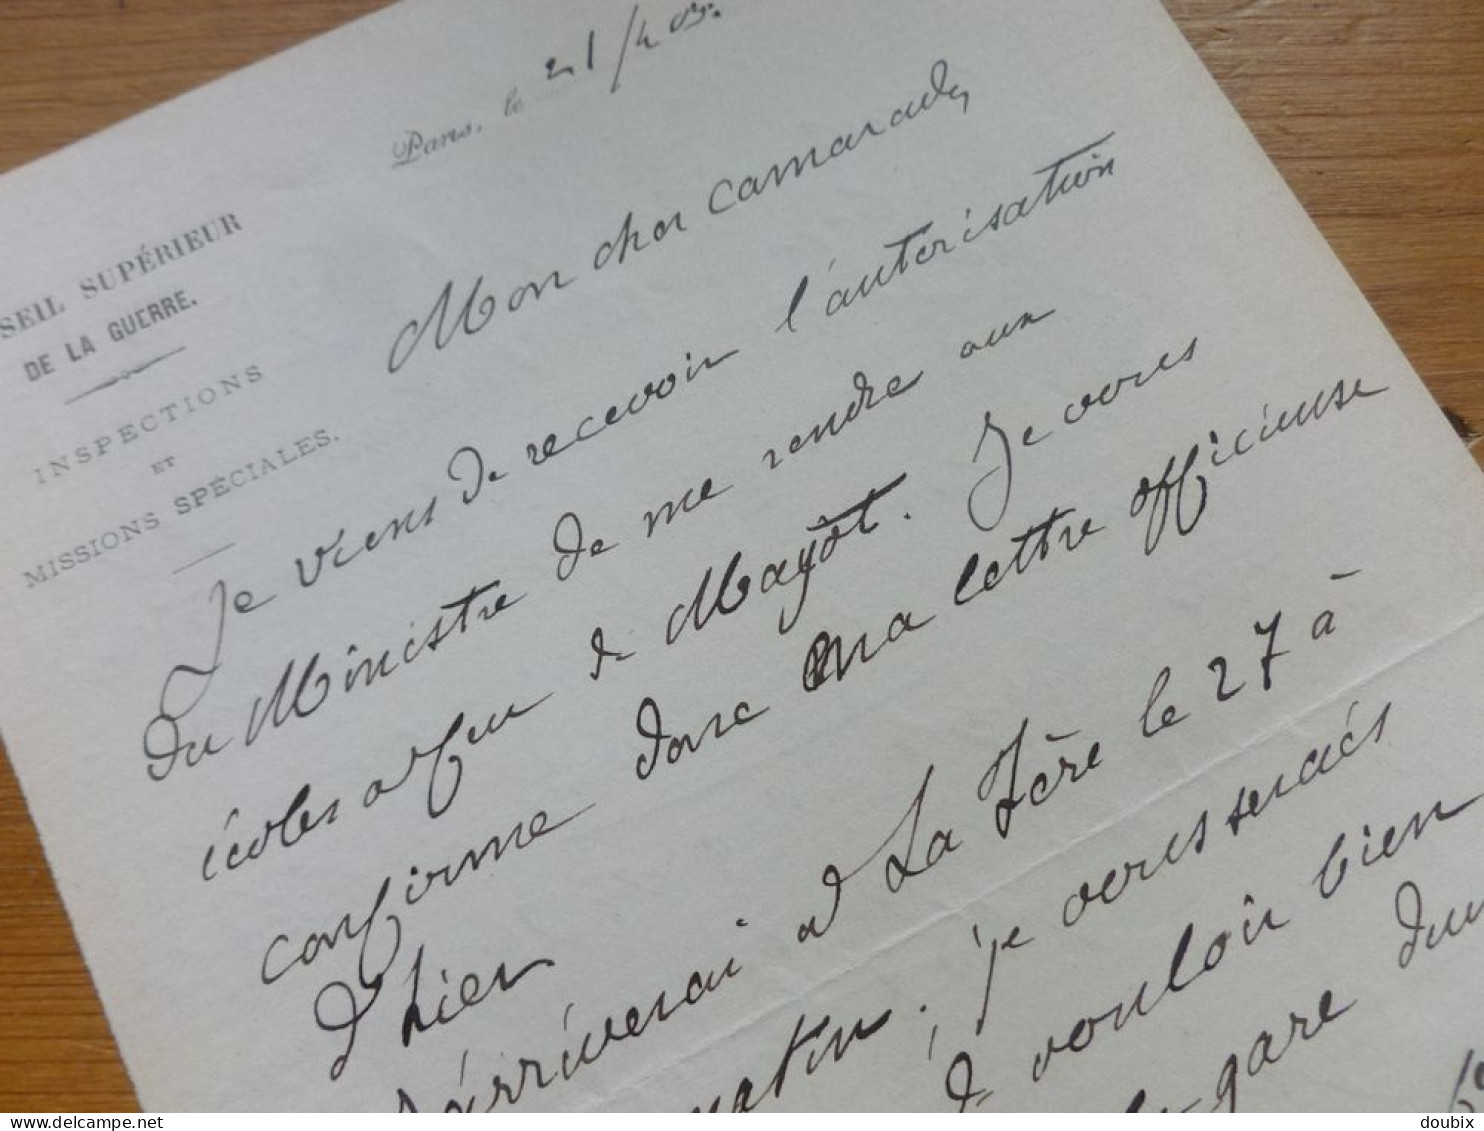 Paris, le 21/4 05.
SEIL SUPÉRIEUR
DE LA GUERRE.
INSPECTIONS
ET
MISSIONS SPÉCIALES.
Mon cher camarade,
Je viens de recevoir l'autorisation
du Ministre de me rendre aux
écoles à feu de Mayot. Je vous
confirme donc ma lettre officieuse
d'hier
J'arriverai à La Fère le 27 à
matin ; je vous serais
de vouloir bien
gare
doubix